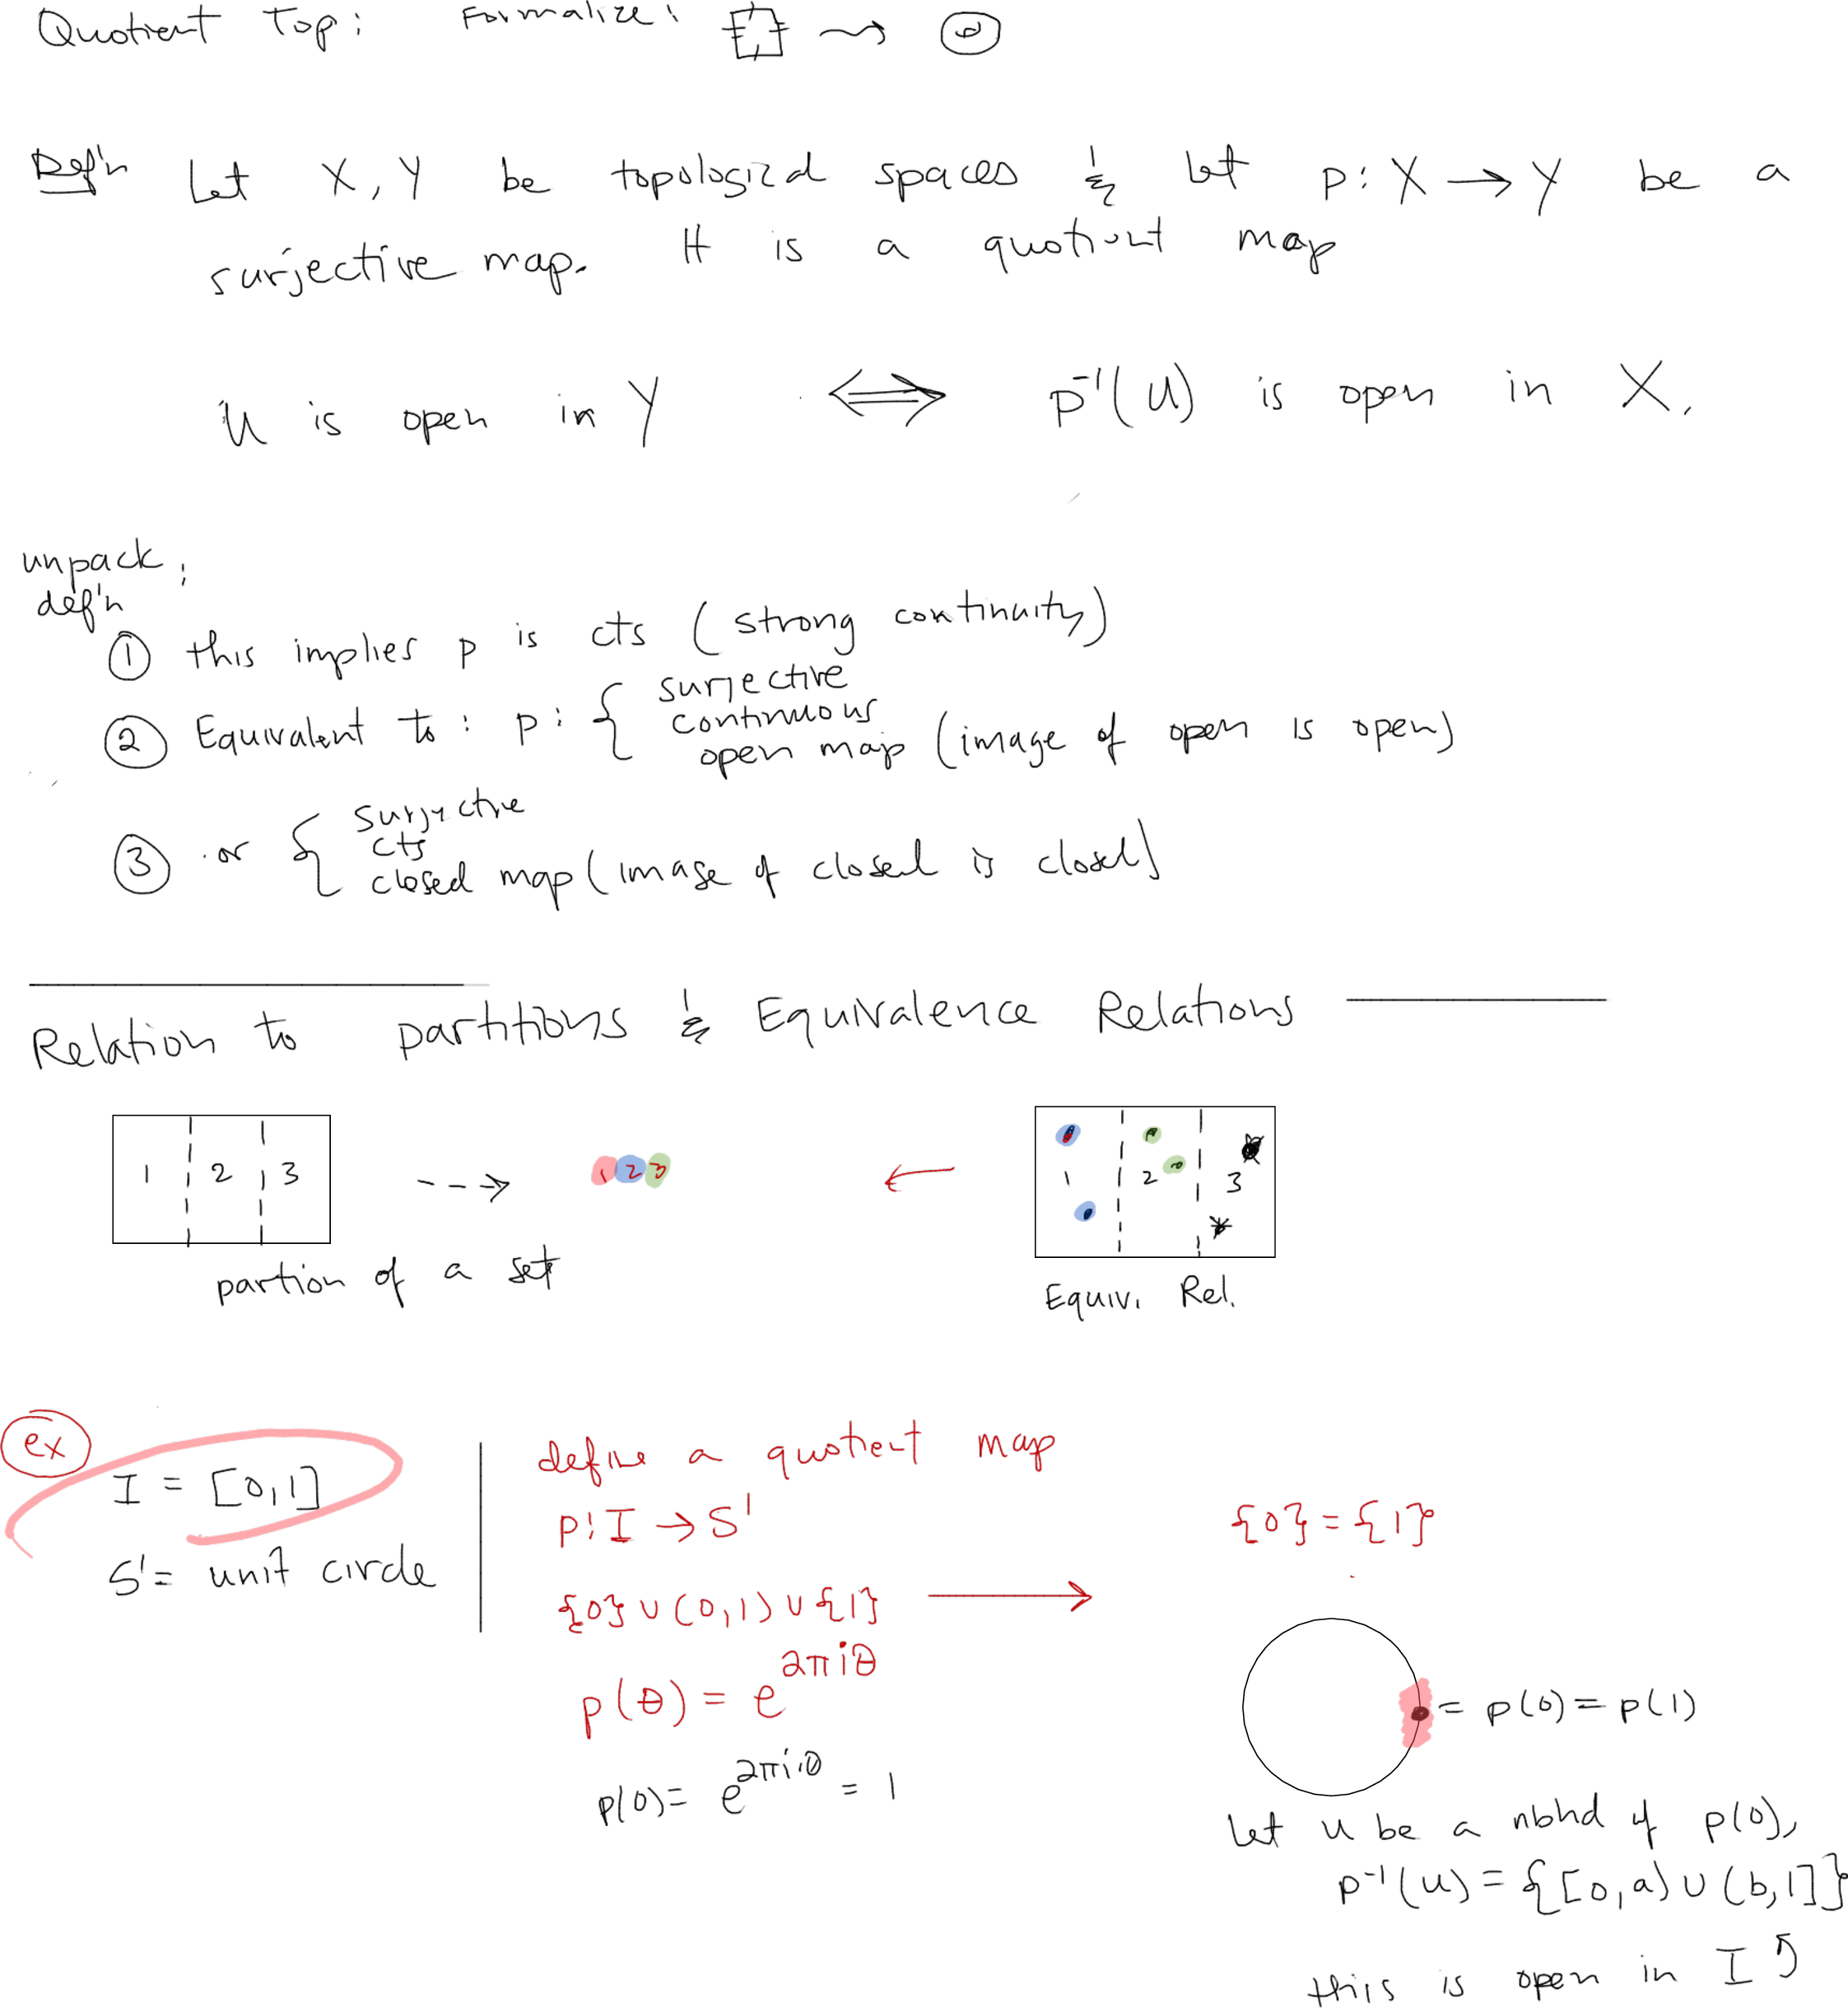 Quotient Top: Formalize:
Def'n Let X, Y be topological spaces & let p: X → Y be a
surjective map. It is a quotient map
U is open in Y ⟺ p⁻¹(U) is open in X.
unpack :
def'n
① this implies p is cts (strong continuity)
② Equivalent to : p: { surjective
continuous
open map (image of open is open)
③ or { surjective
cts
closed map (image of closed is closed)
Relation to partitions & Equivalence Relations
1 2 3 --→ 1 2 3 ← 1 2 3
partion of a set
Equiv. Rel.
ex
I = [0,1]
S¹ = unit circle
define a quotient map
p: I → S¹
{0} ∪ (0,1) ∪ {1} →
{0} = {1}
p(θ) = e^{2πiθ}
p(0) = e^{2πi0} = 1
= p(0) = p(1)
Let U be a nbhd of p(0),
p⁻¹(U) = {[0,a) ∪ (b,1]}
this is open in I